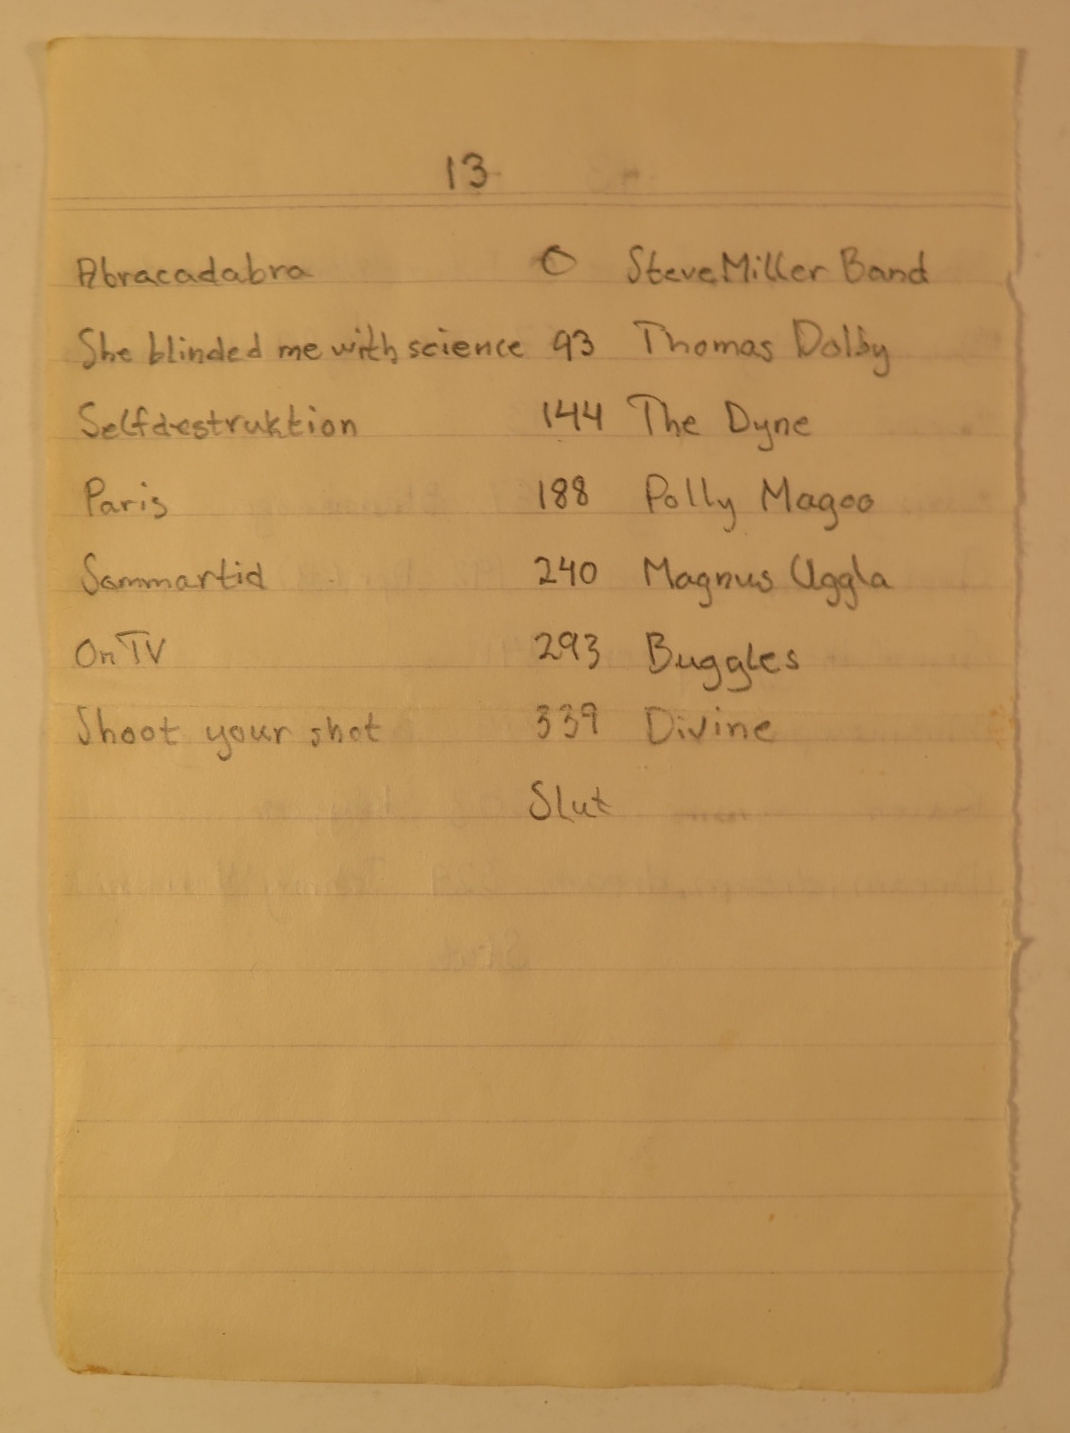 13
Abracadabra 0 Steve Miller Band
She blinded me with science 93 Thomas Dolby
Selfdestruktion 144 The Dyne
Paris 188 Polly Magoo
Sommartid 240 Magnus Uggla
On TV 293 Buggles
Shoot your shot 339 Divine
Slut